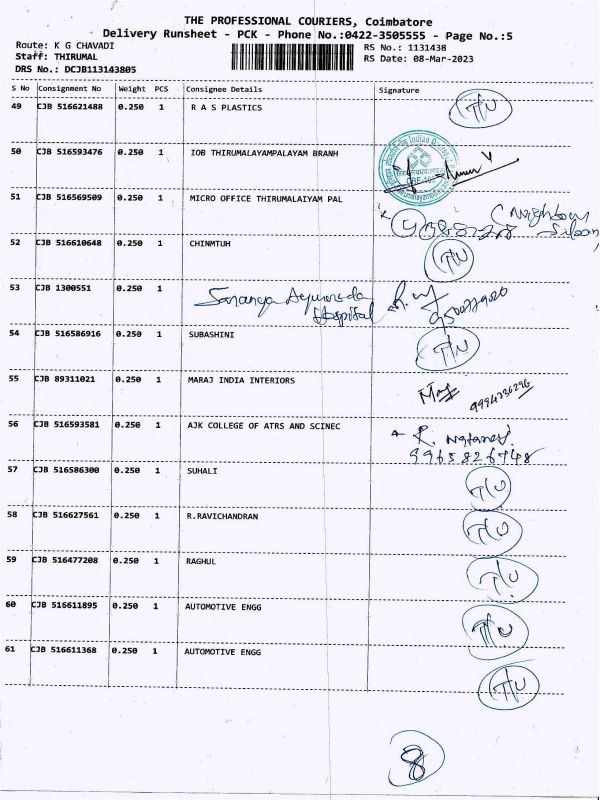 THE PROFESSIONAL COURIERS, Coimbatore
Delivery Runsheet - PCK - Phone No.:0422-3505555 - Page No.:5
Route: K G CHAVADI RS No.: 113143B
Staff: THIRUMAL RS Date: 08-Mar-2023
DRS No.: DCJB113143B05
S No Consignment No Weight PCS Consignee Details Signature
49 CJB 516621488 0.250 1 R A S PLASTICS T/U
50 CJB 516593476 0.250 1 IOB THIRUMALAYAMPALAYAM BRANH
51 CJB 516569509 0.250 1 MICRO OFFICE THIRUMALAIYAM PAL
52 CJB 516610648 0.250 1 CHINMTUH T/U
53 CJB 1300551 0.250 1 Ayurveda
Hospital
54 CJB 516586916 0.250 1 SUBASHINI T/U
55 CJB 89311021 0.250 1 MARAJ INDIA INTERIORS
56 CJB 516593581 0.250 1 AJK COLLEGE OF ATRS AND SCINEC
9965826748
57 CJB 516586300 0.250 1 SUHALI T/U
58 CJB 516627561 0.250 1 R.RAVICHANDRAN T/U
59 CJB 516477208 0.250 1 RAGHUL T/U
60 CJB 516611895 0.250 1 AUTOMOTIVE ENGG T/U
61 CJB 516611368 0.250 1 AUTOMOTIVE ENGG T/U
8